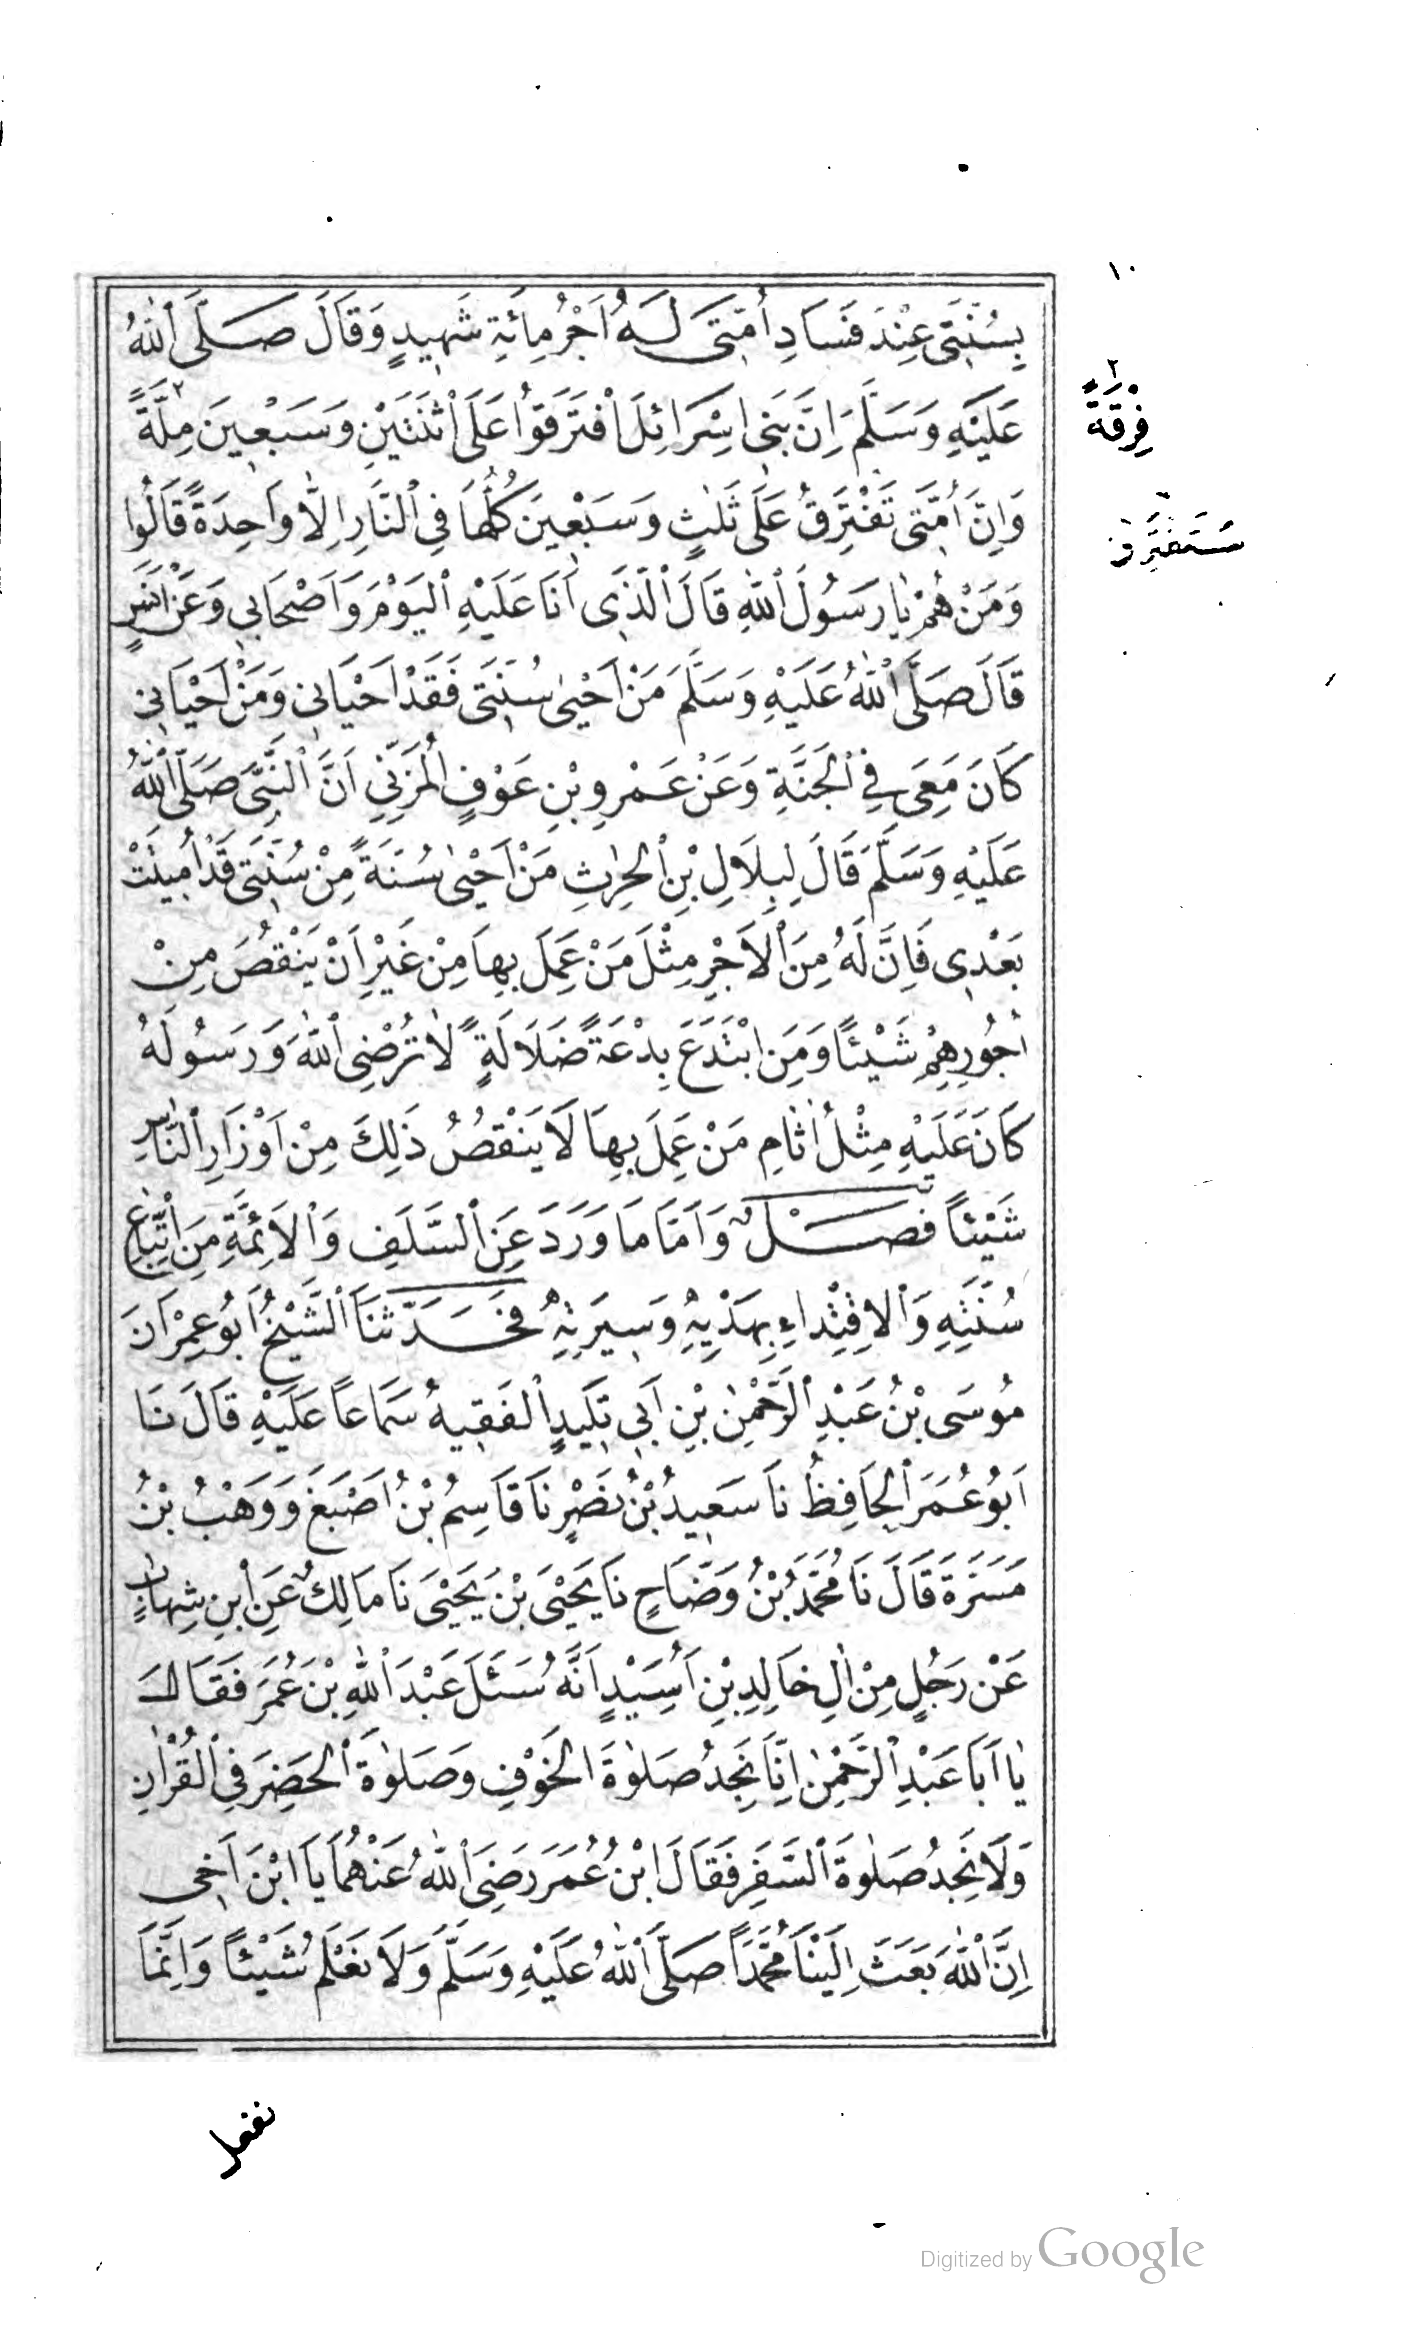 ١٠
بِسُنَّتِي عِنْدَ فَسَادِ أُمَّتِي لَهُ أَجْرُ مِائَةِ شَهِيدٍ وَقَالَ صَلَّى اللّٰهُ
عَلَيْهِ وَسَلَّمَ اِنَّ بَنِي اِسْرَائِلَ افْتَرَقُوا عَلَى اثْنَتَيْنِ وَسَبْعِينَ مِلَّةً٢
٢ فِرْقَةً
وَاِنَّ أُمَّتِي تَفْتَرِقُ عَلَى ثَلٰثٍ وَسَبْعِينَ كُلُّهَا فِي النَّارِ اِلَّا وَاحِدَةً قَالُوا
سَتَفْتَرِقُ
وَمَنْ هُمْ يَا رَسُولَ اللّٰهِ قَالَ الَّذِي أَنَا عَلَيْهِ الْيَوْمَ وَاَصْحَابِي وَعَنْ اَنَسٍ
قَالَ صَلَّى اللّٰهُ عَلَيْهِ وَسَلَّمَ مَنْ اَحْيٰى سُنَّتِي فَقَدْ اَحْيَانِي وَمَنْ اَحْيَانِي
كَانَ مَعِي فِي الْجَنَّةِ وَعَنْ عَمْرِو بْنِ عَوْفٍ الْمُزَنِّيِ اَنَّ النَّبِيَّ صَلَّى اللّٰهُ
عَلَيْهِ وَسَلَّمَ قَالَ لِبِلَالِ بْنِ الْحٰرِثِ مَنْ اَحْيٰى سُنَّةً مِنْ سُنَّتِي قَدْ اُمِيتَتْ
بَعْدِي فَاِنَّ لَهُ مِنَ الْاَجْرِ مِثْلَ مَنْ عَمِلَ بِهَا مِنْ غَيْرِ اَنْ يَنْقُصَ مِنْ
اُجُورِهِمْ شَيْئًا وَمَنِ ابْتَدَعَ بِدْعَةً ضَلَالَةٍ لَا تُرْضِي اللّٰهَ وَرَسُولَهُ
كَانَ عَلَيْهِ مِثْلُ اٰثَامِ مَنْ عَمِلَ بِهَا لَا يَنْقُصُ ذَلِكَ مِنْ اَوْزَارِ النَّاسِ
شَيْئاً فَصْلٌ وَاَمَّا مَا وَرَدَ عَنِ السَّلَفِ وَالْاَئِمَّةِ مِنَ اتِّبَاعِ
سُنَّتِهِ وَالْاِقْتِدَاءِ بِهَدْيِهِ وَسِيرَتِهِ فَحَدَّثَنَا الشَّيْخُ اَبُو عِمْرَانَ
مُوسَى بْنُ عَبْدِ الرَّحْمٰنِ بْنِ اَبِي تَلِيدٍ الْفَقِيهُ سَمَاعاً عَلَيْهِ قَالَ نَا
اَبُو عُمَرَ الْحَافِظُ نَا سَعِيدُ بْنُ نَصْرٍ نَا قَاسِمُ بْنُ اَصْبَغَ وَوَهْبُ بْنُ
مَسَرَّةَ قَالَ نَا مُحَمَّدُ بْنُ وَضَّاحٍ نَا يَحْيَى بْنُ يَحْيَى نَا مَالِكٌ عَنِ ابْنِ شِهَابٍ
عَنْ رَجُلٍ مِنْ اٰلِ خَالِدِ بْنِ اَسِيْدٍ اَنَّهُ سَئَلَ عَبْدَ اللّٰهِ بْنَ عُمَرَ فَقَالَ
يَا اَبَا عَبْدِ الرَّحْمٰنِ اِنَّا نَجِدُ صَلٰوةَ الْخَوْفِ وَصَلٰوةَ الْحَضَرِ فِي الْقُرْاٰنِ
وَلَا نَجِدُ صَلٰوةَ السَّفَرِ فَقَالَ ابْنُ عُمَرَ رَضِيَ اللّٰهُ عَنْهُمَا يَا ابْنَ اَخِي
اِنَّ اللّٰهَ بَعَثَ اِلَيْنَا مُحَمَّدًا صَلَّى اللّٰهُ عَلَيْهِ وَسَلَّمَ وَلَا نَعْلَمُ شَيْئًا وَاِنَّمَا
نفعل
Digitized by Google